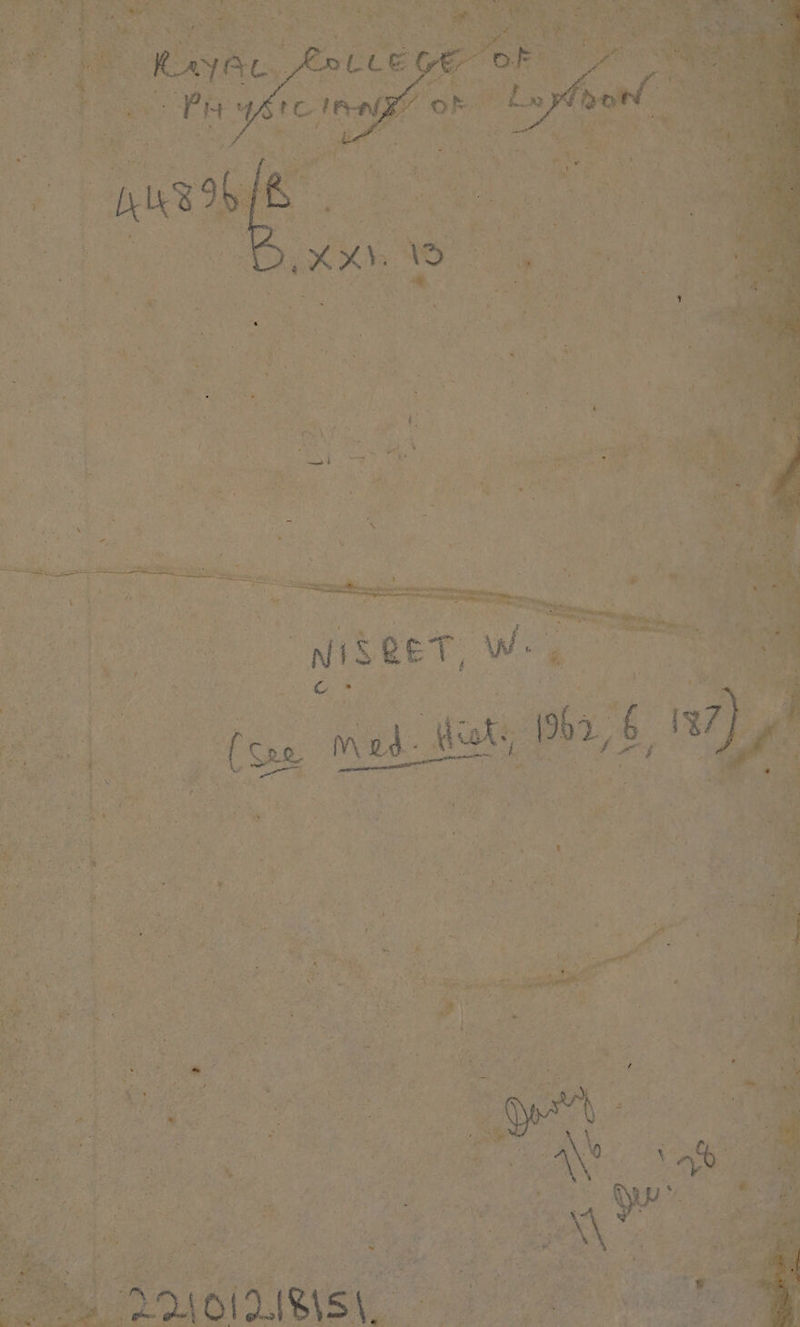 ROYAL COLLEGE OF
PHYSICIANS OF LONDON
44896/B
B. XXI. 13
NISBET, W.
(See Med. Hist., 1962, 6, 187)
Davey
7/6
11 Dec. '28
22101218151.